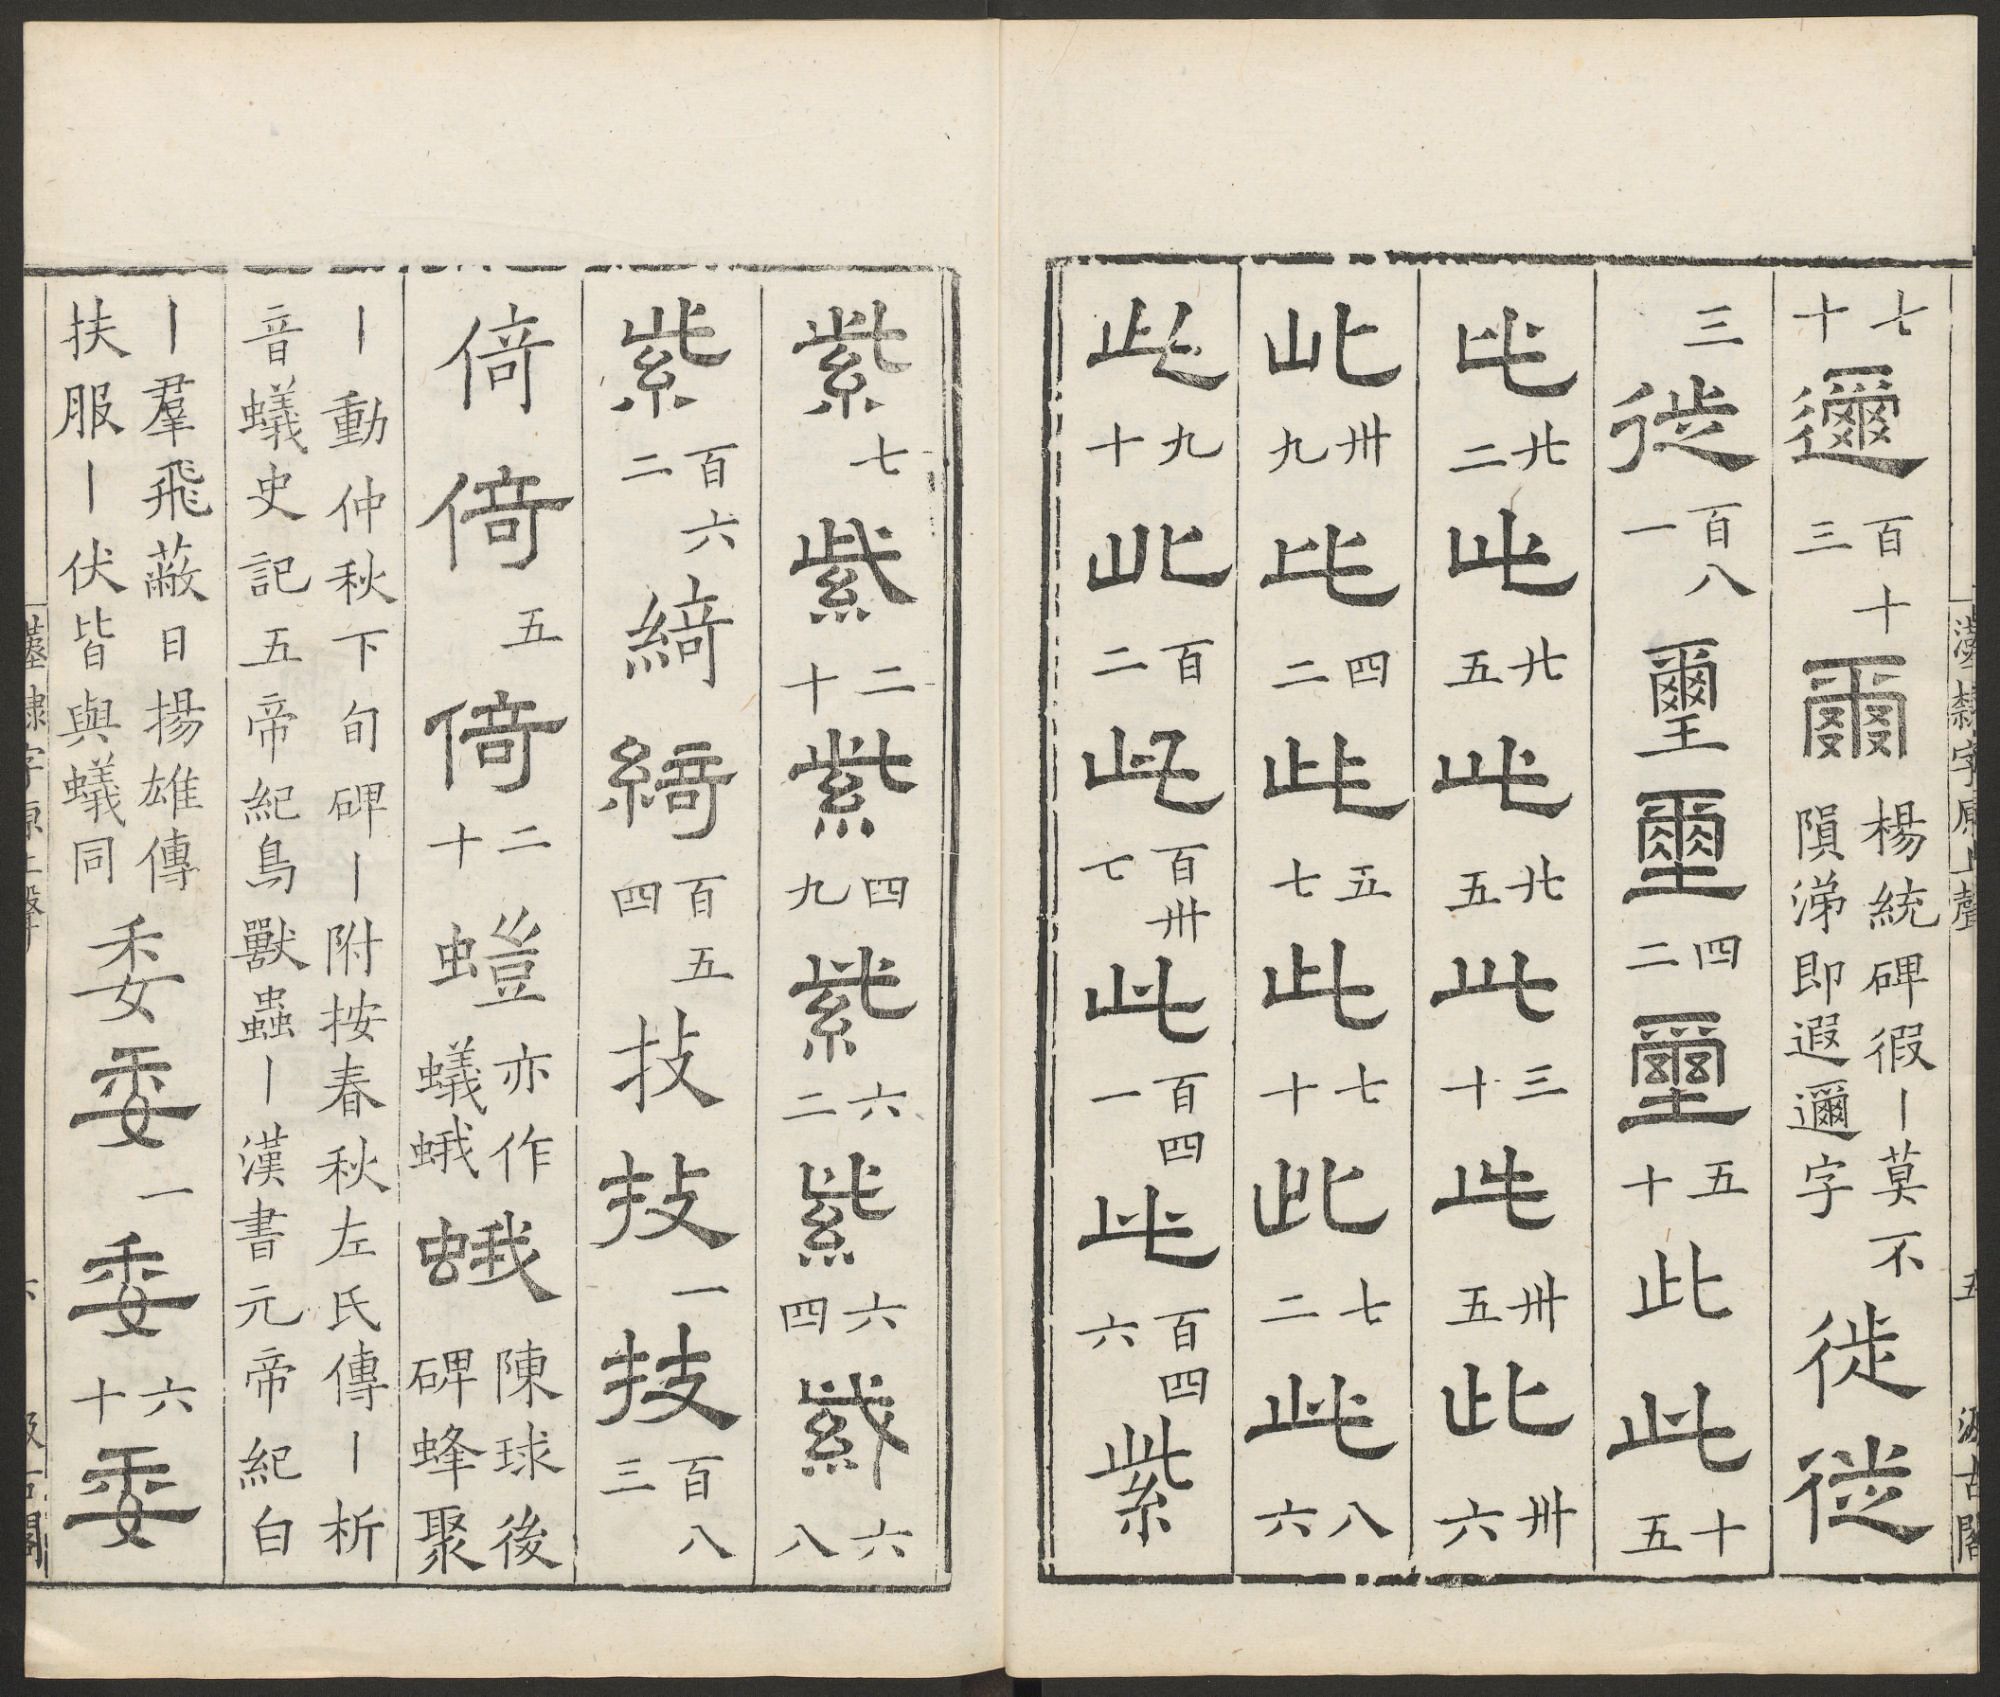 漢隸字原上聲 五 汲古閣
七十邇百十三爾楊統碑徦丨莫不隕涕即遐邇字徙徙
三徙百八一璽璽四二璽五十此此十五
此廿二此廿五此廿五此三十此卅五此卅六
此卅九此四二此五七此七十此七二此八六
此九十此百二此百卅七此百四一此百四六紫
紫七紫二十紫四九紫六二紫六四紫六八
紫百六二綺綺百五四技技一技百八三
倚倚五倚二十螘亦作蟻蛾蛾陳球後碑蜂聚
丨動仲秋下旬碑丨附按春秋左氏傳丨析音蟻史記五帝紀鳥獸蟲丨漢書元帝紀白
丨羣飛蔽日揚雄傳扶服丨伏皆與蟻同委委一委六十委
隸字原上聲 六 汲古閣